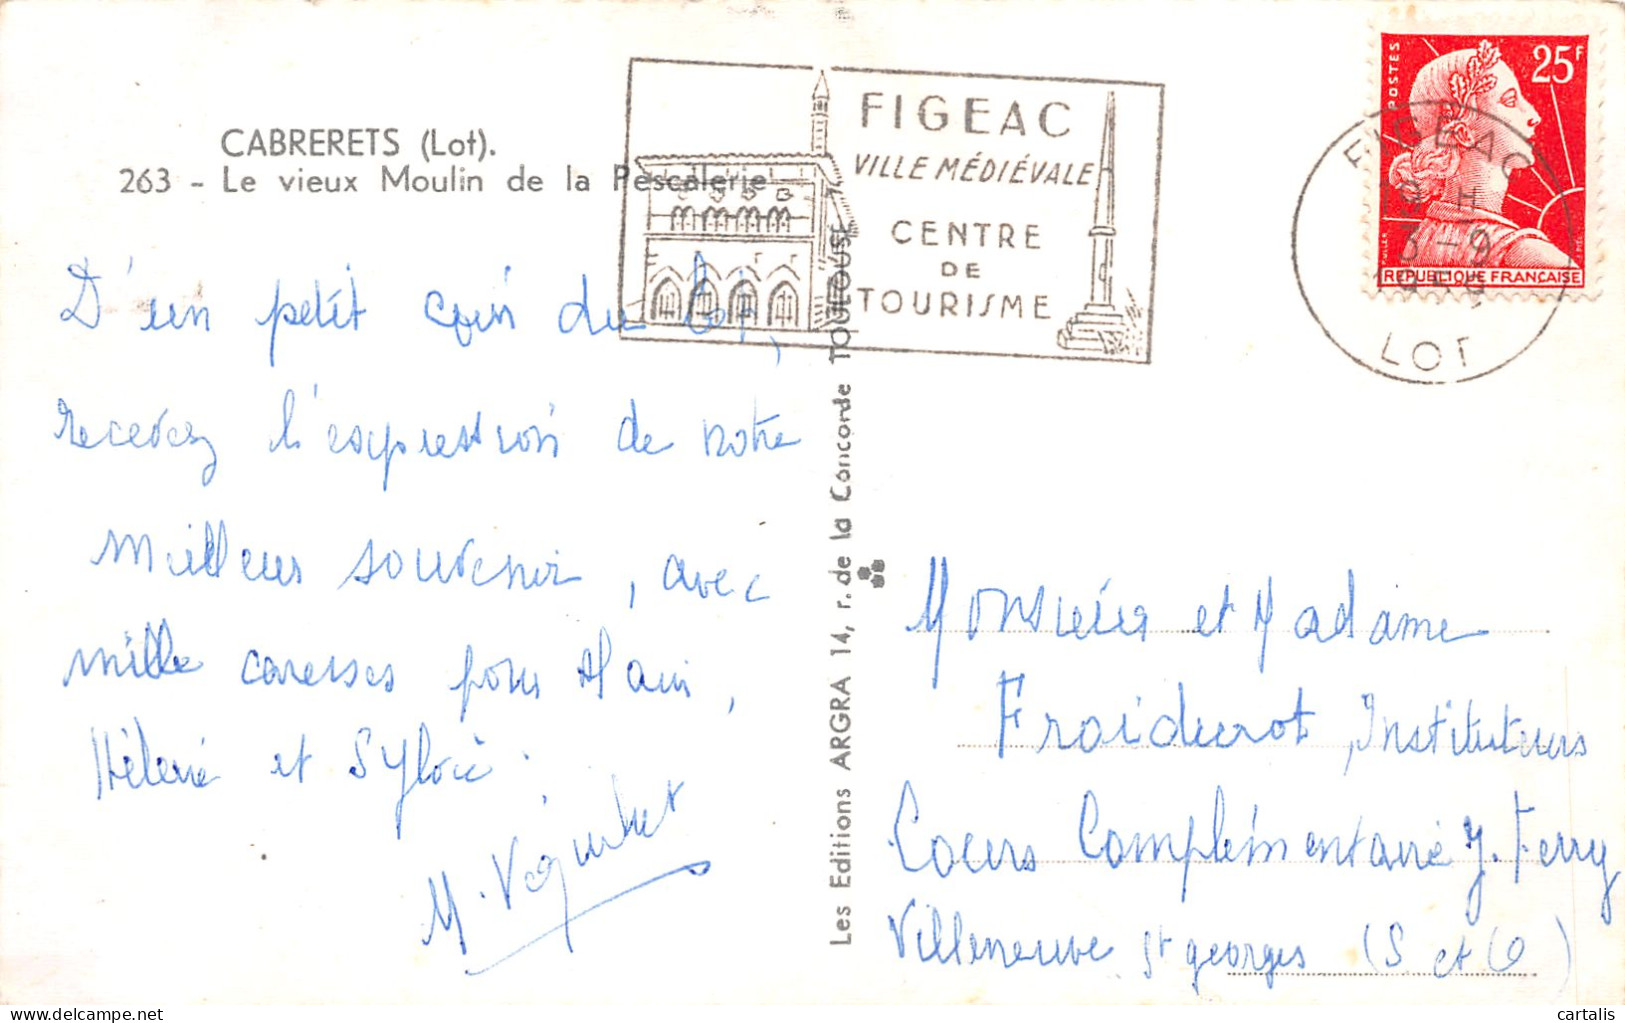 CABRERETS (Lot).
263 - Le vieux Moulin de la Pescalerie
FIGEAC
VILLE MÉDIÉVALE
CENTRE
DE
TOURISME
POSTES
25F
REPUBLIQUE FRANCAISE
FIGEAC
3-9
LOT
D'un petit coin du Lot,
recevez l'expression de notre
meilleur souvenir, avec
mille caresses pour Alain,
Hélène et Sylvie.
M.
Les Editions ARGRA 14, r. de la Concorde TOULOUSE
Monsieur et Madame
Froidurot, Instituteurs
Cours Complémentaire J. Ferry
Villeneuve St georges (S et O)
cartalis.delcampe.net